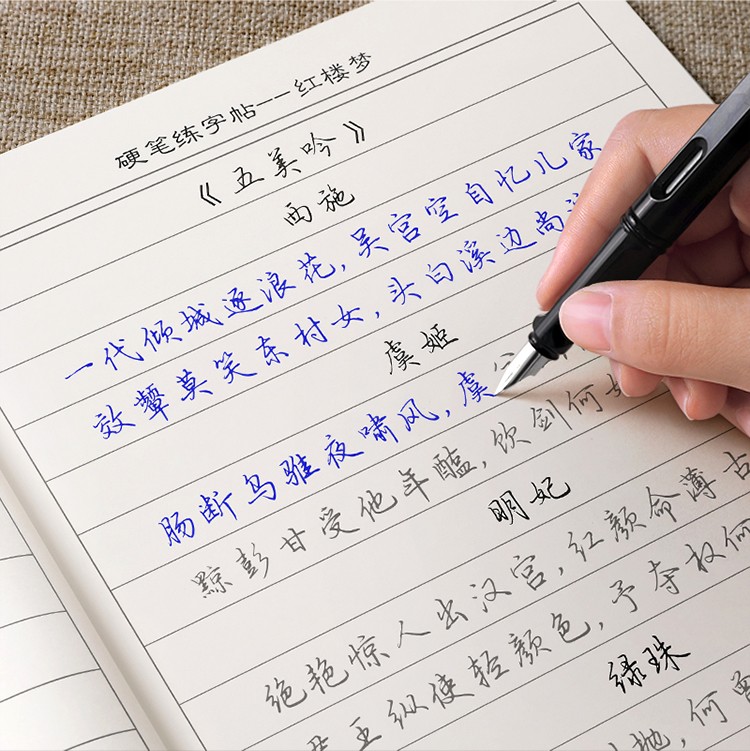 硬笔练字帖——红楼梦
《五美吟》
西施
一代倾城逐浪花，吴宫空自忆儿家
效颦莫笑东村女，头白溪边尚
虞姬
肠断乌骓夜啸风，虞
黥彭甘受他年醢，饮剑何
明妃
绝艳惊人出汉宫，红颜命薄古
君王纵使轻颜色，予夺权何
绿珠
抛，何曾